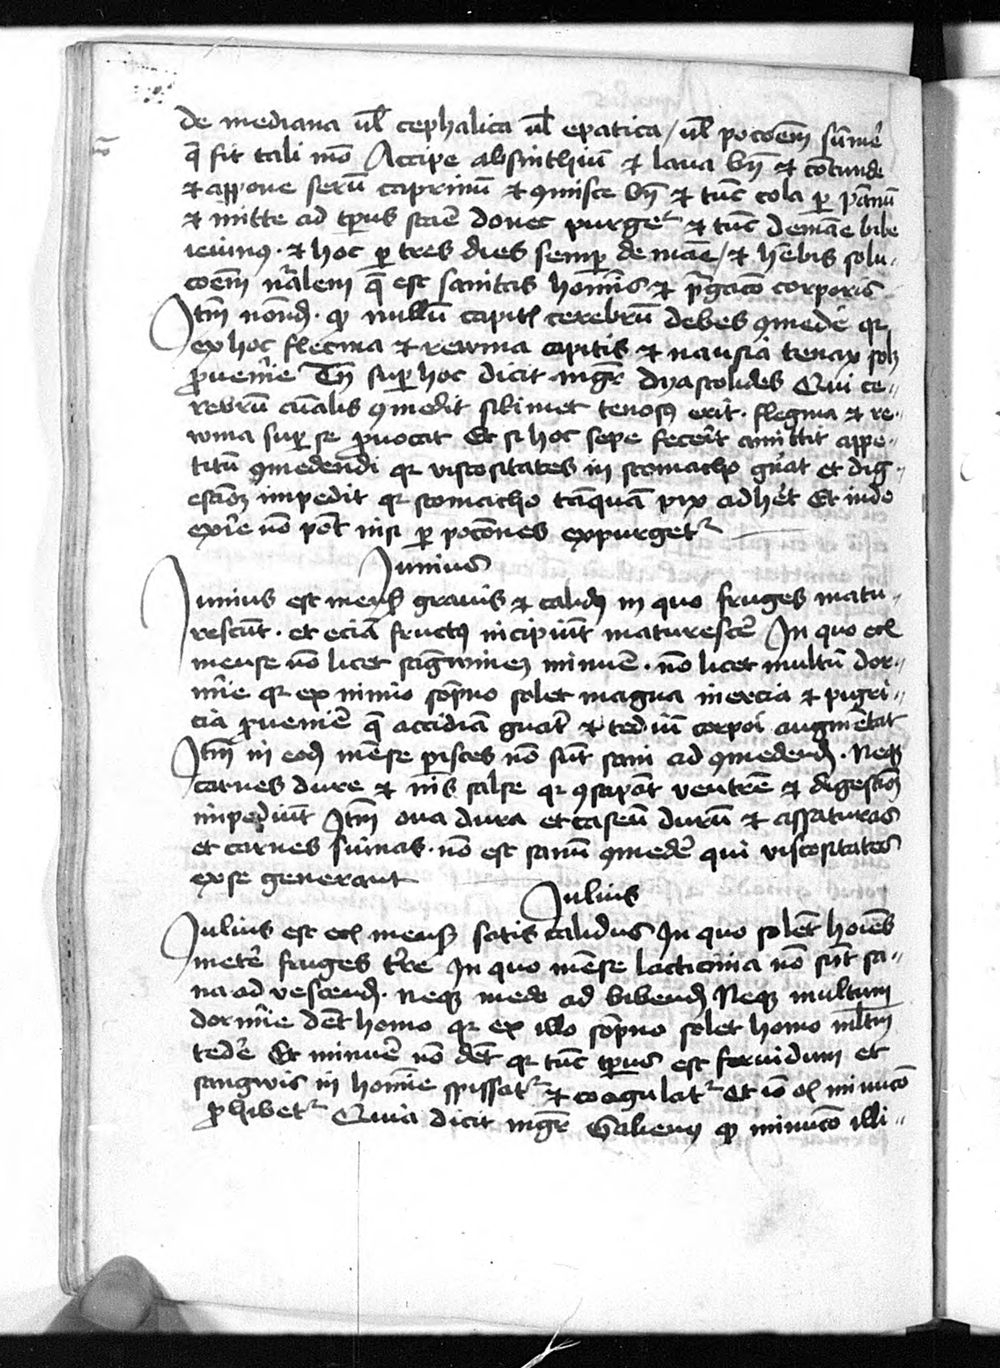 de mediana ul̄ cephalica ul̄ epatica / ul̄ pocōem sūm̄e
q̄ fit tali mō Accipe absinthiū et laua bn̄ et cōtunde
et appone serū caprinū et ꝯmisce bn̄ et tūc cola ꝑ pānū
et mitte ad tp̄us stare donec purget᷑ et tūc de mane bibe
ieiunꝰ · et hoc ꝑ tres dies semꝑ de mane / et hēbis solu-
cōem nr̄alem q̄ est sanitas homīs et pr̄gacō corporis
Itm̄ nonꝺ · ꝙ nullū capitꝭ cerebrū debes ꝯmede qꝛ
ex hoc flecma et rewma capitis et nausia tenax solꝫ
ꝓuenīre Tn̄ suꝑ hoc dicit mgr̄ dyascolides Qui ce-
rebrū aīalis ꝯmedit sibimet erit · flegma et re-
wma suꝑ se ꝓuocat Et si hoc sepe fecerit amittit appe-
titū ꝯmedendi qꝛ viscositates in stomacho gn̄at et dig-
estiōꝫ impedit qꝛ stomacho tāquā pix adhēt Et inde
exire nō pōt nisi ꝑ pocōnes expurget᷑
Junius
Junius est mensꝭ grauis et calidꝰ in quo fruges matu-
rescūt · et eciā fructꝰ incipiūt maturescē In quo eciā
mense nō licet sagwineꝫ minuē · nō licet multū dor-
mīe qꝛ ex nimio sōpno solet magna inercia et pigri-
cia ꝓueniē q̄ accidiā gn̄at et tediū corpori augmētat
Itm̄ in eodꝫ mēse pisces nō sūt sani ad ꝯmedendꝫ · Neqꝫ
carnes dure et nīs salse qꝛ ventrē et digestiōꝫ
impediūt Itm̄ oua dura et caseū durū et assaturas
et carnes suinas · nō est sanū ꝯmedē qui viscositates
ex se generant
Julius
Julius est eciā mensꝭ satis calidus In quo solēt hoīes
metē fruges tr̄e In quo mēse lacticinia nō sūt sa-
na ad vescendꝫ · neqꝫ medo ad bibendꝫ Neqꝫ multum
dormīe dēt homo qꝛ ex illo sōpno solet homo ml̄tm̄
tedē Et minuē nō dēt qꝛ tūc tp̄us est feruidum et
sangwis in homīe spissat᷑ et coagulat᷑ Et iō oīs minucō
ꝓhibet᷑ Quia dicit mgr̄ Galienꝰ ꝙ minucō illi-